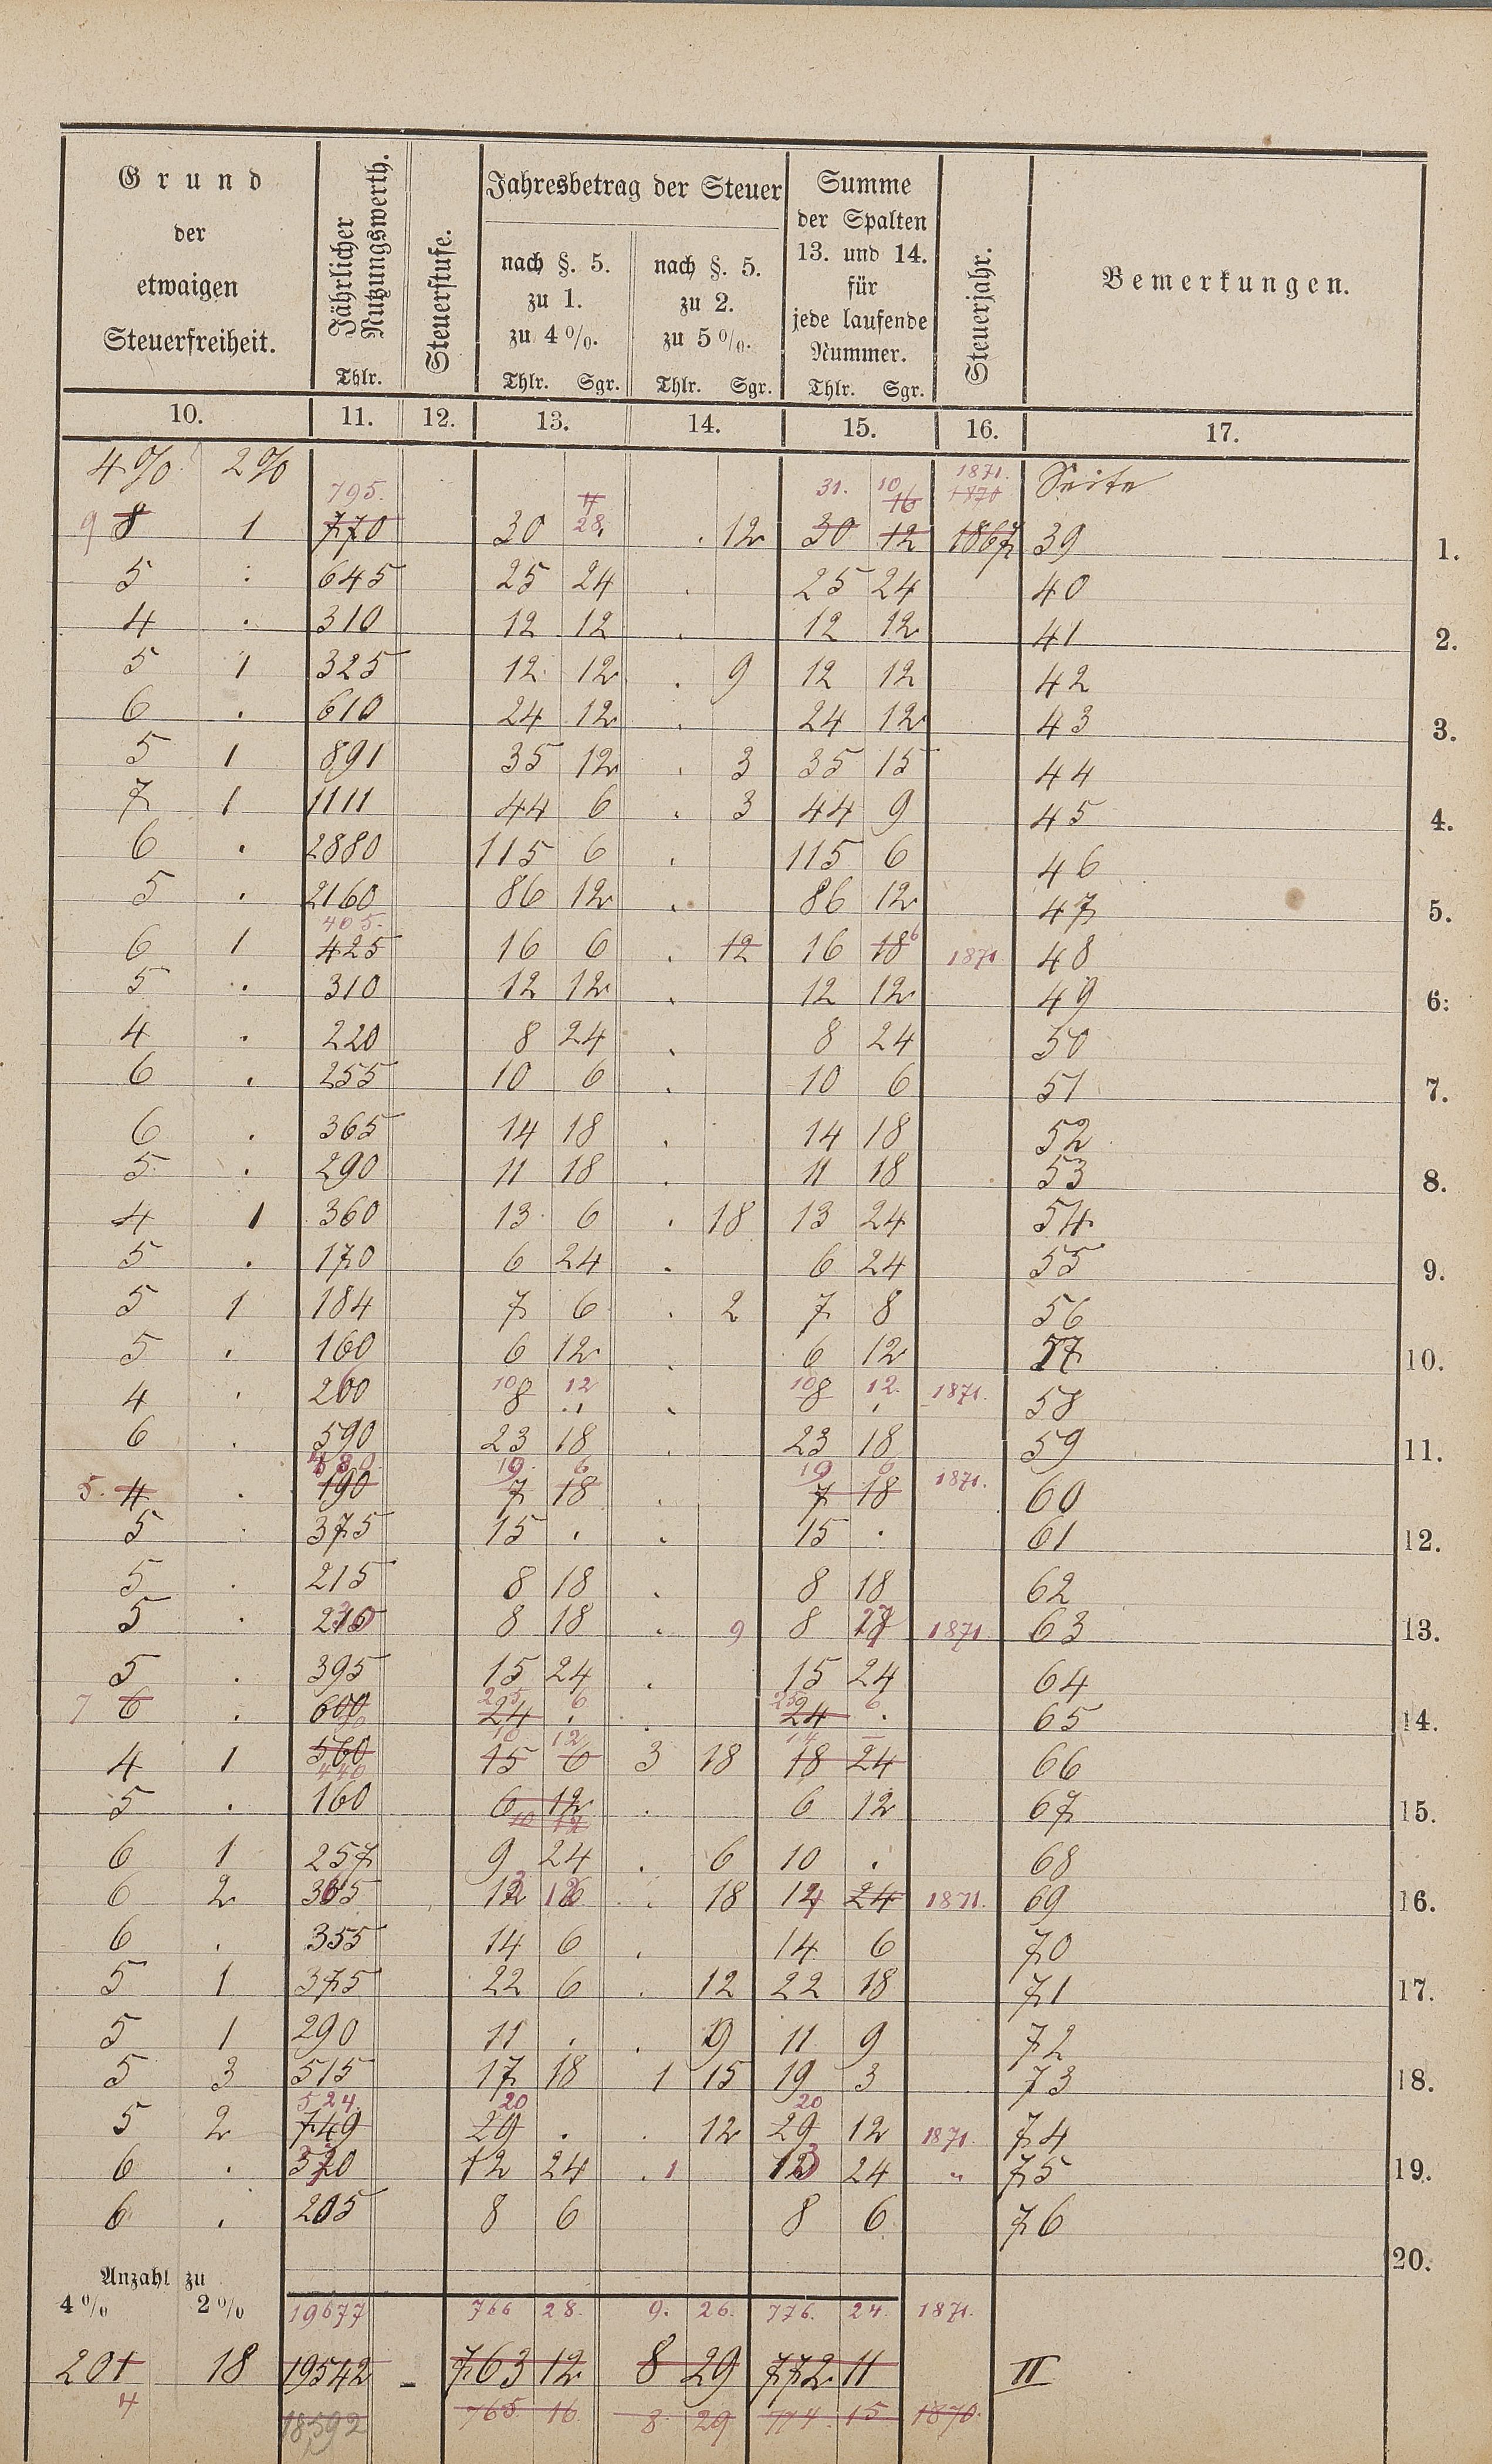 Grund der etwaigen Steuerfreiheit. Jährlicher Nutzungswerth. Thlr. Steuerstufe. Jahresbetrag der Steuer nach §. 5. zu 1. zu 4%. Thlr. Sgr. nach §. 5. zu 2. zu 5%. Thlr. Sgr. Summe der Spalten 13. und 14. für jede laufende Nummer. Thlr. Sgr. Steuerjahr. Bemerkungen.
10. 11. 12. 13. 14. 15. 16. 17.
4% 2% 1871. Seite
795. 4 31. 10 16 1870
9 8 1 770 30 28. . 12 30 12 1867 39 1.
5 . 645 25 24 . 25 24 40
4 . 310 12 12 . 12 12 41 2.
5 1 325 12 12 . 9 12 12 42
6 . 610 24 12 . 24 12 43 3.
5 1 891 35 12 . 3 35 15 44
7 1 1111 44 6 . 3 44 9 45 4.
6 . 2880 115 6 . 115 6 46
5 . 2160 86 12 . 86 12 47 5.
405.
6 1 425 16 6 . 12 16 18 6 1871 48
5 . 310 12 12 . 12 12 49 6.
4 . 220 8 24 . 8 24 50
6 . 255 10 6 . 10 6 51 7.
6 . 365 14 18 . 14 18 52
5 . 290 11 18 . 11 18 53 8.
4 1 360 13 6 . 18 13 24 54
5 . 170 6 24 . 6 24 55 9.
5 1 184 7 6 . 2 7 8 56
5 . 160 6 12 . 6 12 57 10.
10 12 10 12.
4 . 260 8 . . 8 . 1871. 58
6 . 590 23 18 . 23 18 59 11.
480. 19. 6 19 6
5. 4 . 190 7 18 . 7 18 1871. 60
5 . 375 15 . . 15 . 61 12.
5 . 215 8 18 . 8 18 62
5 . 8 18 . 9 8 27 1871. 63 13.
5 . 395 15 24 . 15 24 64
25 6 25 6
7 6 . 600 24 . . 24 . 65 14.
10 12 14 —
4 1 560 15 6 3 18 18 24 66
440
5 . 160 6 12 . 6 12 67 15.
10 12
6 1 257 9 24 . 6 10 . 68
6 2 . 18 14 24 1871. 69 16.
6 . 355 14 6 . 14 6 70
5 1 375 22 6 . 12 22 18 71 17.
5 1 290 11 . . 9 11 9 72
5 3 515 17 18 1 15 19 3 73 18.
524. 20 20
5 2 749 29 . . 12 29 12 1871. 74
6 . 12 24 . 1 13 24 " 75 19.
6 . 205 8 6 8 6 76
20.
Anzahl zu
4% 2% 19677 766 28. 9. 26. 776. 24. 1871.
201 18 19542 - 763 12 8 29 772 11 II
4 18592 765. 16 8. 29 774. 15. 1870.